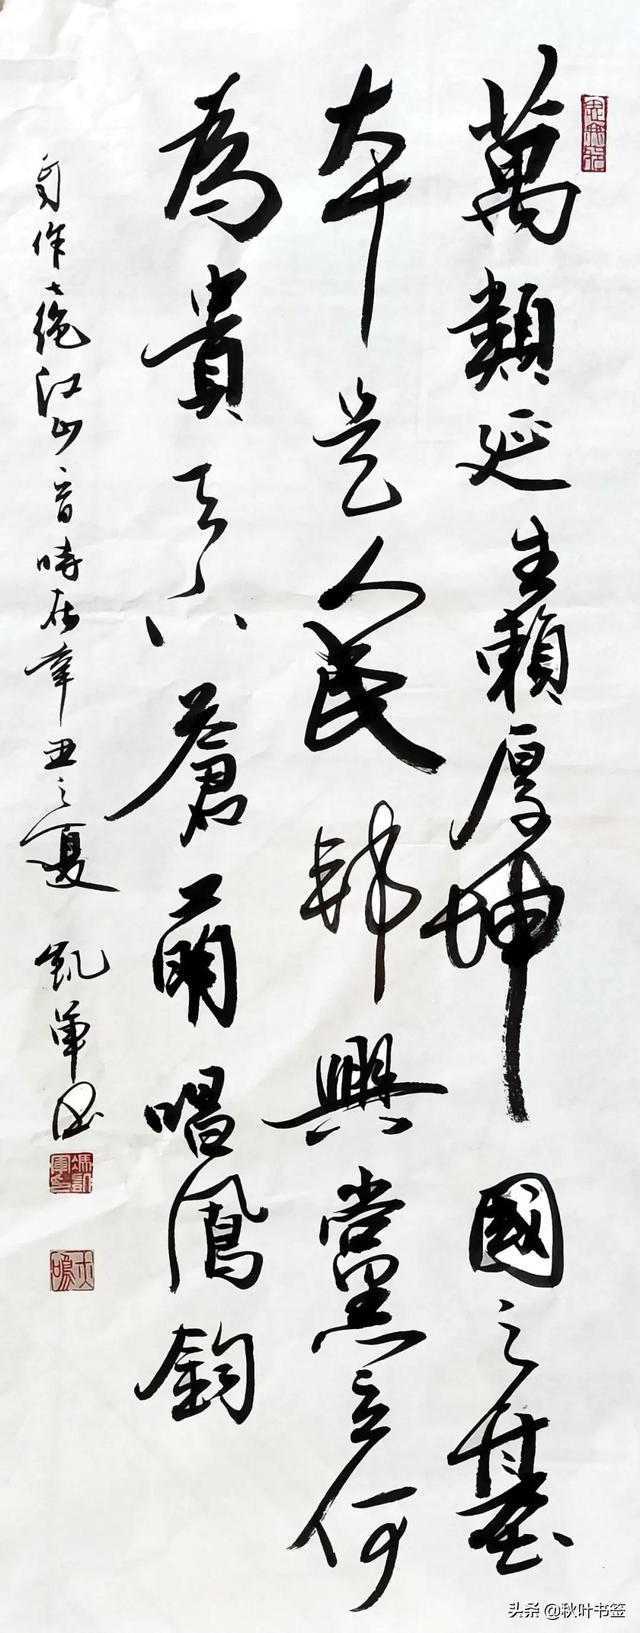 萬類延生賴厚坤國之基
本是人民邦興黨立何
為貴天下蒼萌唱鳳鈞
自作七絕江山音時在辛丑之夏 凱軍書
头条 @秋叶书签